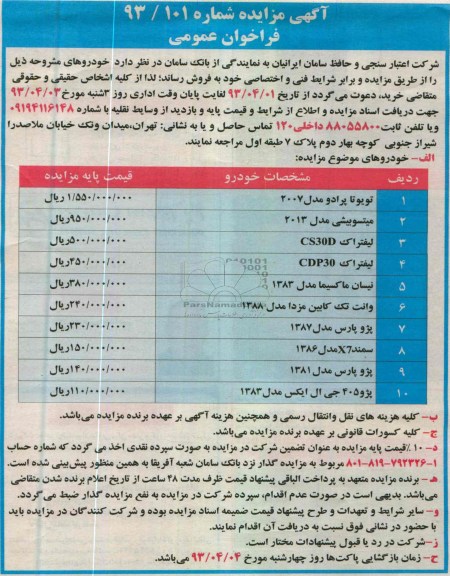 آگهی مزایده شماره ۱۰۱ / ۹۳
فراخوان عمومی
شرکت اعتبار سنجی و حافظ سامان ایرانیان به نمایندگی از بانک سامان در نظر دارد خودروهای مشروحه ذیل
را از طریق مزایده و برابر شرایط فنی و اختصاصی خود به فروش رساند؛ لذا از کلیه اشخاص حقیقی و حقوقی
متقاضی خرید، دعوت می‌گردد از تاریخ ۹۳/۰۴/۰۱ لغایت پایان وقت اداری روز ۳شنبه مورخ ۹۳/۰۴/۰۳
جهت دریافت اسناد مزایده و اطلاع از شرایط و قیمت پایه و بازدید از وسایط نقلیه با شماره ۰۹۱۹۴۱۱۶۱۴۸
و یا تلفن ثابت ۸۸۰۵۵۸۰۰ داخلی ۱۲۰ تماس حاصل و یا به نشانی: تهران، میدان ونک خیابان ملاصدرا
شیراز جنوبی کوچه بهار دوم پلاک ۷ طبقه اول مراجعه نمایند.
الف- خودروهای موضوع مزایده:
ردیف مشخصات خودرو قیمت پایه مزایده
۱ تویوتا پرادو مدل۲۰۰۷ ۱/۵۵۰/۰۰۰/۰۰۰ ریال
۲ میتسوبیشی مدل ۲۰۱۳ ۹۵۰/۰۰۰/۰۰۰ریال
۳ لیفتراک CS30D ۵۰۰/۰۰۰/۰۰۰ریال
۴ لیفتراک CDP30 ۴۵۰/۰۰۰/۰۰۰ریال
۵ نیسان ماکسیما مدل ۱۳۸۳ ۳۸۰/۰۰۰/۰۰۰ریال
۶ وانت تک کابین مزدا مدل ۱۳۸۸ ۲۴۰/۰۰۰/۰۰۰ریال
۷ پژو پارس مدل۱۳۸۷ ۲۳۰/۰۰۰/۰۰۰ریال
۸ سمندX7مدل۱۳۸۶ ۱۵۰/۰۰۰/۰۰۰ریال
۹ پژو پارس مدل ۱۳۸۱ ۱۴۰/۰۰۰/۰۰۰ریال
۱۰ پژو۴۰۵ جی ال ایکس مدل۱۳۸۳ ۱۱۰/۰۰۰/۰۰۰ریال
ب- کلیه هزینه های نقل وانتقال رسمی و همچنین هزینه آگهی بر عهده برنده مزایده می‌باشد.
ج- کلیه کسورات قانونی بر عهده برنده مزایده می‌باشد.
د- ۱۰٪ قیمت پایه مزایده به عنوان تضمین شرکت در مزایده به صورت سپرده نقدی اخذ می گردد که شماره حساب
۱-۷۹۲۳۲۶-۸۱۹-۸۰۱ مربوط به مزایده گذار نزد بانک سامان شعبه آفریقا به همین منظور پیش‌بینی شده است.
ه- برنده مزایده متعهد به پرداخت الباقی پیشنهاد قیمت ظرف مدت ۴۸ ساعت از تاریخ اعلام برنده شدن متقاضی
می‌باشد. بدیهی است در صورت عدم اقدام، سپرده شرکت در مزایده به نفع مزایده گذار ضبط می‌گردد.
و- سایر شرایط و تعهدات و طرح پیشنهاد قیمت ضمیمه اسناد مزایده بوده و شرکت کنندگان در مزایده باید
با حضور در نشانی فوق نسبت به دریافت آن اقدام نمایند.
ز- شرکت در رد یا قبول پیشنهادات مختار است.
ح- زمان بازگشایی پاکت‌ها روز چهارشنبه مورخ ۹۳/۰۴/۰۴ می‌باشد.